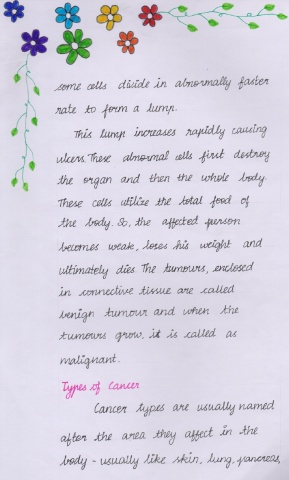 some cells divide in abnormally faster
rate to form a lump.
This lump increases rapidly causing
ulcers. These abnormal cells first destroy
the organ and then the whole body.
These cells utilize the total food of
the body. So, the affected person
becomes weak, loses his weight and
ultimately dies. The tumours, enclosed
in connective tissue are called
benign tumour and when the
tumours grow, it is called as
malignant.
Types of Cancer
Cancer types are usually named
after the area they affect in the
body - usually like skin, lung, pancreas,